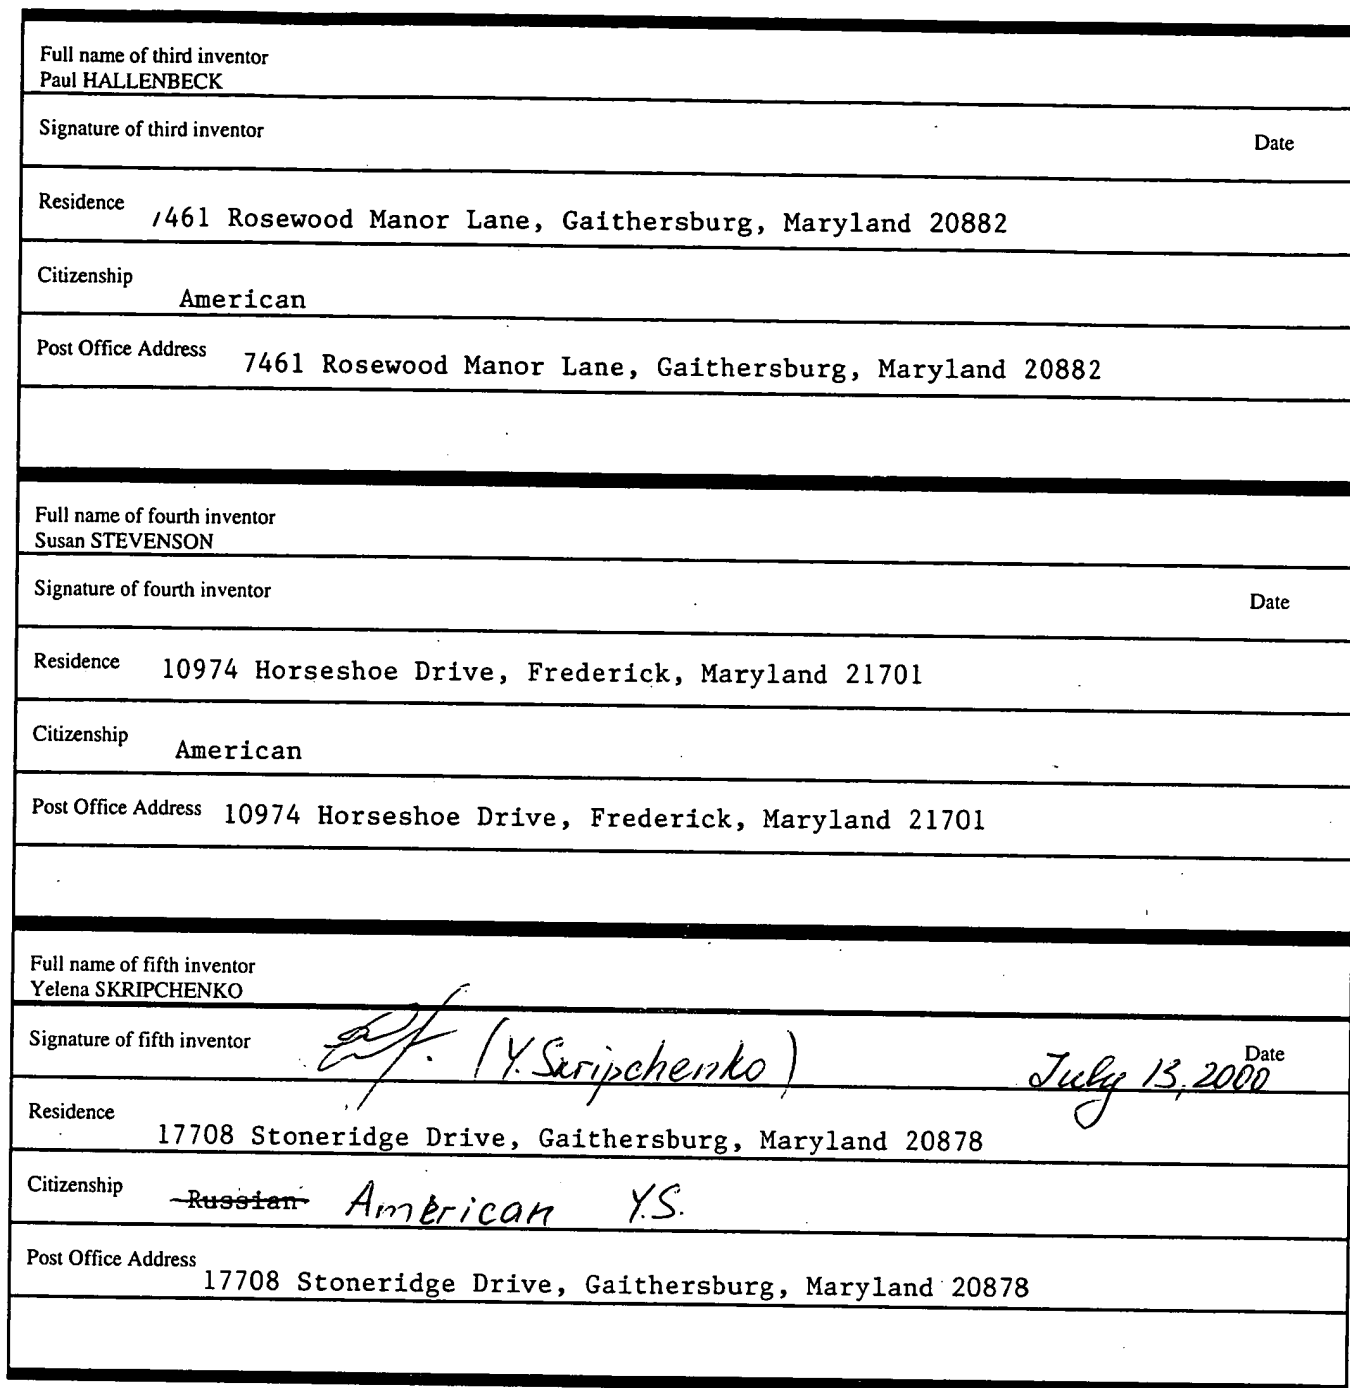 Full name of third inventor
Paul HALLENBECK
Signature of third inventor
Date
Residence 7461 Rosewood Manor Lane, Gaithersburg, Maryland 20882
Citizenship
American
Post Office Address 7461 Rosewood Manor Lane, Gaithersburg, Maryland 20882
Full name of fourth inventor
Susan STEVENSON
Signature of fourth inventor
Date
Residence 10974 Horseshoe Drive, Frederick, Maryland 21701
Citizenship American
Post Office Address 10974 Horseshoe Drive, Frederick, Maryland 21701
Full name of fifth inventor
Yelena SKRIPCHENKO
Signature of fifth inventor (Y. Skripchenko) July 13, 2000 Date
Residence
17708 Stoneridge Drive, Gaithersburg, Maryland 20878
Citizenship Russian American Y.S.
Post Office Address
17708 Stoneridge Drive, Gaithersburg, Maryland 20878